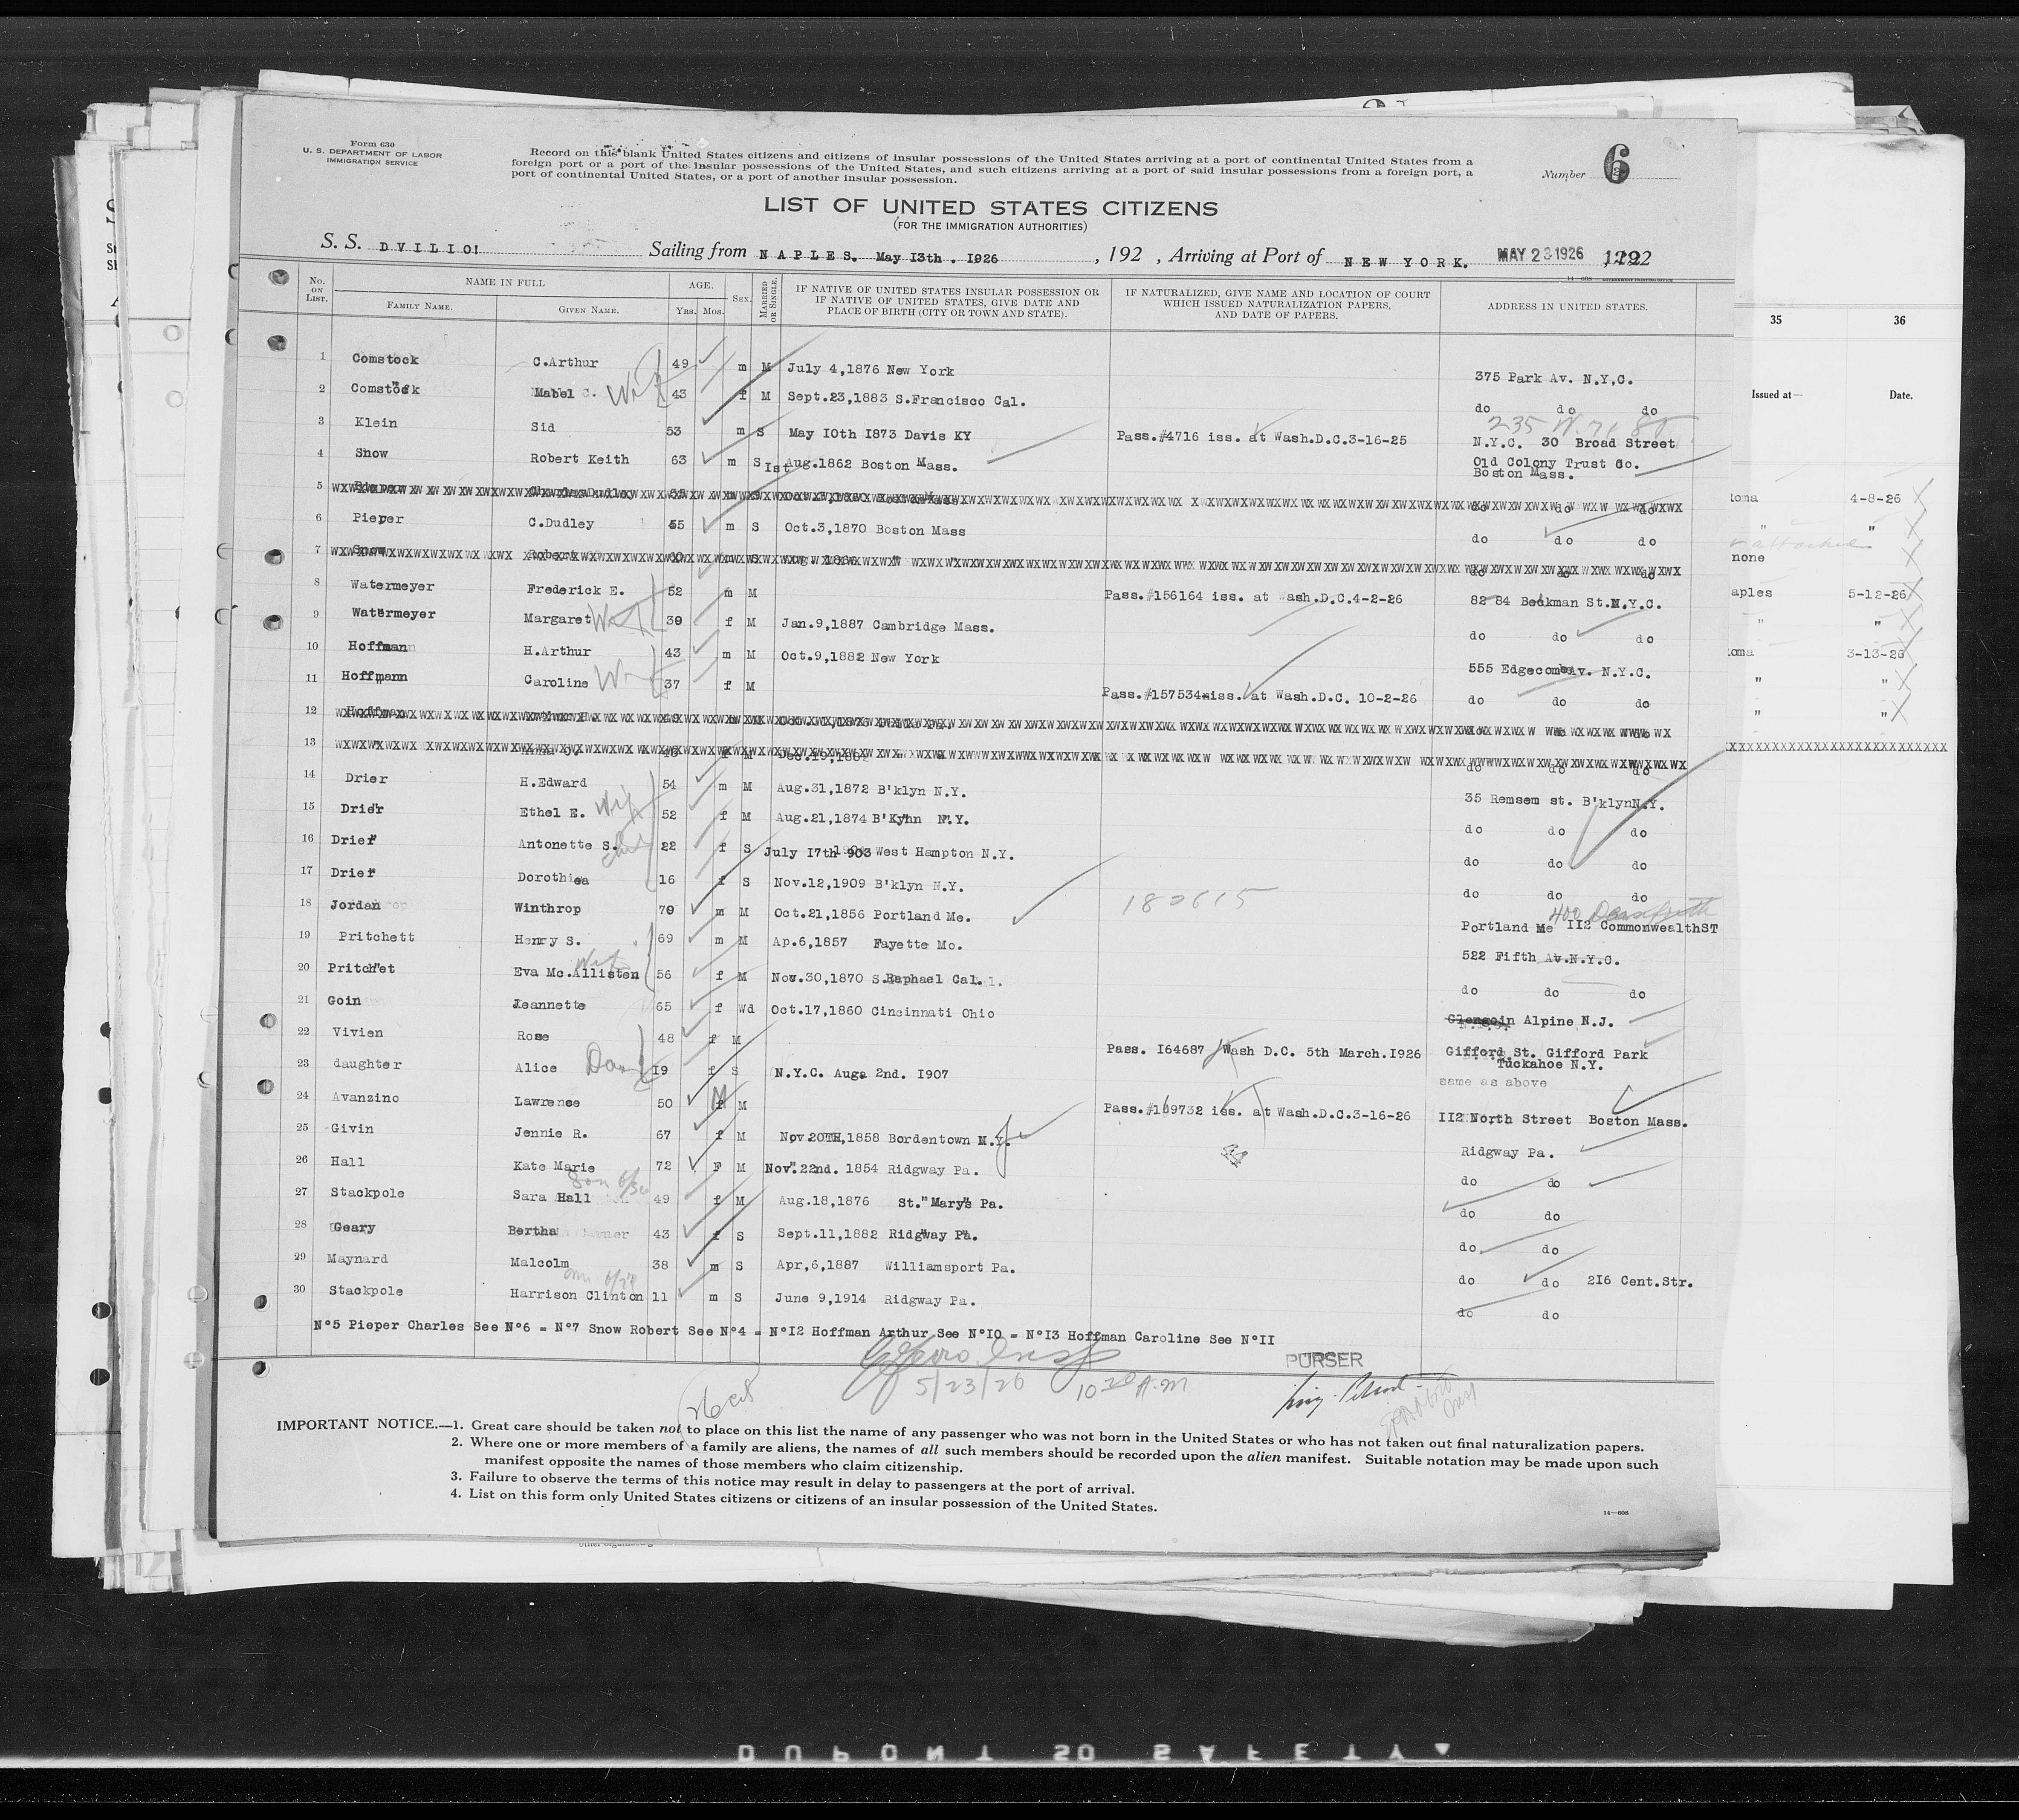 Form 630
U. S. DEPARTMENT OF LABOR
IMMIGRATION SERVICE
Record on this blank United States citizens and citizens of insular possessions of the United States arriving at a port of continental United States from a
foreign port or a port of the insular possessions of the United States, and such citizens arriving at a port of said insular possessions from a foreign port, a
port of continental United States, or a port of another insular possession.
Number 6
LIST OF UNITED STATES CITIZENS
(FOR THE IMMIGRATION AUTHORITIES)
S. S. DVILIO! Sailing from NAPLES. May I3th. I926, 192 , Arriving at Port of NEW YORK. MAY 23 1926, 192
No. ON LIST. NAME IN FULL AGE. SEX. MARRIED OR SINGLE. IF NATIVE OF UNITED STATES INSULAR POSSESSION OR IF NATIVE OF UNITED STATES, GIVE DATE AND PLACE OF BIRTH (CITY OR TOWN AND STATE). IF NATURALIZED, GIVE NAME AND LOCATION OF COURT WHICH ISSUED NATURALIZATION PAPERS, AND DATE OF PAPERS. ADDRESS IN UNITED STATES.
FAMILY NAME. GIVEN NAME. Yrs. Mos.
35 36
Issued at— Date.
1 Comstock C.Arthur 49 m M July 4,1876 New York 375 Park Av. N.Y,C.
2 Comstock Mabel C. Wife 43 f M Sept.23,1883 S.Francisco Cal. do do do
235 W. 71 St
3 Klein Sid 53 m S May I0th I873 Davis KY Pass.#4716 iss. at Wash.D.C.3-16-25 N.Y.C. 30 Broad Street
4 Snow Robert Keith 63 m S Ist Aug.1862 Boston Mass. Old Colony Trust Co.
Boston Mass.
5 do do do
6 Pieper C.Dudley 55 m S Oct.3,1870 Boston Mass do do do
7 Snow Robert
8 Watermeyer Frederick E. 52 m M Pass.#156164 iss. at Wash.D.C.4-2-26 82 84 Beekman St.N.Y.C.
9 Watermeyer Margaret Wife 39 f M Jan.9,1887 Cambridge Mass. do do do
10 Hoffmann H.Arthur 43 m M Oct.9,1882 New York 555 Edgecombe Av. N.Y.C.
11 Hoffmann Caroline Wife 37 f M Pass.#157534-iss. at Wash.D.C. 10-2-26 do do do
12 Hoffman
13
14 Drier H.Edward 54 m M Aug.31,1872 B'klyn N.Y. 35 Remsem st. B'klynN.Y.
15 Drier Ethel E. Wife 52 f M Aug.21,1874 B'Kyhn N.Y. do do do
16 Drier Antonette S. 22 f S July I7th 903 West Hampton N.Y. do do do
17 Drier Dorothea 16 f S Nov.12,1909 B'klyn N.Y. do do do
18 Jordan Winthrop 70 m M Oct.21,1856 Portland Me. 182615 Portland Me II2 CommonwealthST
19 Pritchett Henry S. 69 m M Ap.6,1857 Fayette Mo. 522 Fifth Av.N.Y.C.
20 Pritchet Eva Mc.Allisten Wife 56 f M Nov.30,1870 S.Raphael Cal. do do do
21 Goin Jeannette 65 f Wd Oct.17,1860 Cincinnati Ohio Glengoin Alpine N.J.
22 Vivien Rose 48 f M Pass. I64687 Wash D.C. 5th March.1926 Gifford St. Gifford Park
Tuckahoe N.Y.
23 daughter Alice Dau I9 f S N.Y.C. Auga 2nd. I907 same as above
24 Avanzino Lawrence 50 M M Pass.#169732 iss. at Wash.D.C.3-16-26 II2 North Street Boston Mass.
25 Givin Jennie R. 67 f M Nov.20TH,1858 Bordentown N.J. Ridgway Pa.
26 Hall Kate Marie 72 F M Nov.22nd. 1854 Ridgway Pa. do do
27 Stackpole Sara Hall 49 f M Aug.18,1876 St. Marys Pa. do do
28 Geary Bertha 43 f S Sept.11,1882 Ridgway Pa. do do
29 Maynard Malcolm 38 m S Apr,6,1887 Williamsport Pa. do do 2I6 Cent.Str.
30 Stackpole Harrison Clinton 11 m S June 9,1914 Ridgway Pa. do do
Nº5 Pieper Charles See Nº6 = Nº7 Snow Robert See Nº4 = NºI2 Hoffman Arthur See NºIO = NºI3 Hoffman Caroline See NºII
5/23/26 10 20 A.M
PURSER
26 cit
IMPORTANT NOTICE.—1. Great care should be taken not to place on this list the name of any passenger who was not born in the United States or who has not taken out final naturalization papers.
2. Where one or more members of a family are aliens, the names of all such members should be recorded upon the alien manifest. Suitable notation may be made upon such
manifest opposite the names of those members who claim citizenship.
3. Failure to observe the terms of this notice may result in delay to passengers at the port of arrival.
4. List on this form only United States citizens or citizens of an insular possession of the United States.
14—608
4-8-26
none
5-12-26
3-13-26
DUPONT SO SAFETY